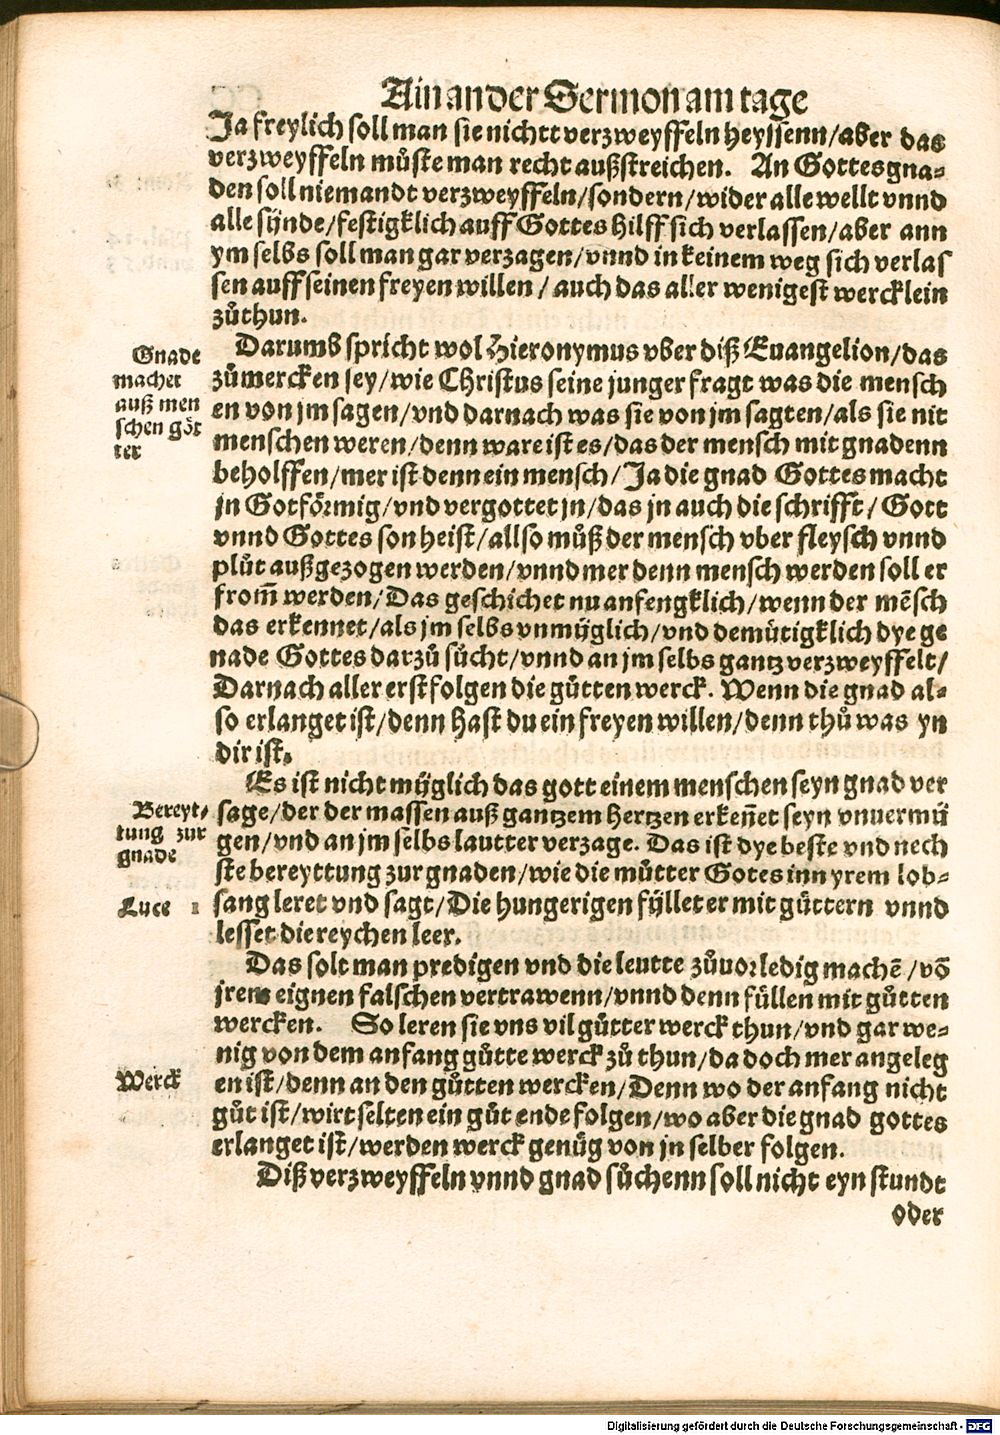 Ain ander Sermon am tage
Ja freylich soll man sie nichtt verzweyffeln heyssenn/aber das
verzweyffeln můste man recht außstreichen. An Gottes gna⸗
den soll niemandt verzweyffeln/sondern/wider alle wellt vnnd
alle sünde/festigklich auff Gottes hilff sich verlassen/aber ann
ym selbs soll man gar verzagen/vnnd in keinem weg sich verlas
sen auff seinen freyen willen / auch das aller wenigest wercklein
zůthun.
Darumb spricht wol Hieronymus vber diß Euangelion/das
zůmercken sey/wie Christus seine junger fragt was die mensch
en von jm sagen/vnd darnach was sie von jm sagten/als sie nit
menschen weren/denn ware ist es/das der mensch mit gnadenn
beholffen/mer ist denn ein mensch/Ja die gnad Gottes macht
jn Gotförmig/vnd vergottet jn/das jn auch die schrifft/Gott
vnnd Gottes son heist/allso můß der mensch vber fleysch vnnd
plůt außgezogen werden/vnnd mer denn mensch werden soll er
from̄ werden/Das geschichet nu anfengklich/wenn der mēsch
das erkennet/als jm selbs vnmüglich/vnd demütigklich dye ge
nade Gottes darzů sůcht/vnnd an jm selbs gantz verzweyffelt/
Darnach aller erst folgen die gůtten werck. Wenn die gnad al⸗
so erlanget ist/denn hast du ein freyen willen/denn thů was yn
dir ist.
Es ist nicht müglich das gott einem menschen seyn gnad ver
sage/der der massen auß gantzem hertzen erken̄et seyn vnuermü
gen/vnd an jm selbs lautter verzage. Das ist dye beste vnd nech
ste bereyttung zur gnaden/wie die můtter Gotes inn yrem lob⸗
sang leret vnd sagt/Die hungerigen füllet er mit gůttern vnnd
lesset die reychen leer.
Das solt man predigen vnd die leutte zůuor ledig machē/vō
jrem eignen falschen vertrawenn/vnnd denn füllen mit gůtten
wercken. So leren sie vns vil gůtter werck thun/vnd gar we⸗
nig von dem anfang gůtte werck zů thun/da doch mer angeleg
en ist/denn an den gůtten wercken/Denn wo der anfang nicht
gůt ist/wirt selten ein gůt ende folgen/wo aber die gnad gottes
erlanget ist/werden werck genůg von jn selber folgen.
Diß verzweyffeln vnnd gnad sůchenn soll nicht eyn stundt
oder
Gnade
machet
auß men
schen göt
ter
Bereyt⸗
tung zur
gnade
Luce 1
Werck
Digitalisierung gefördert durch die Deutsche Forschungsgemeinschaft - DFG